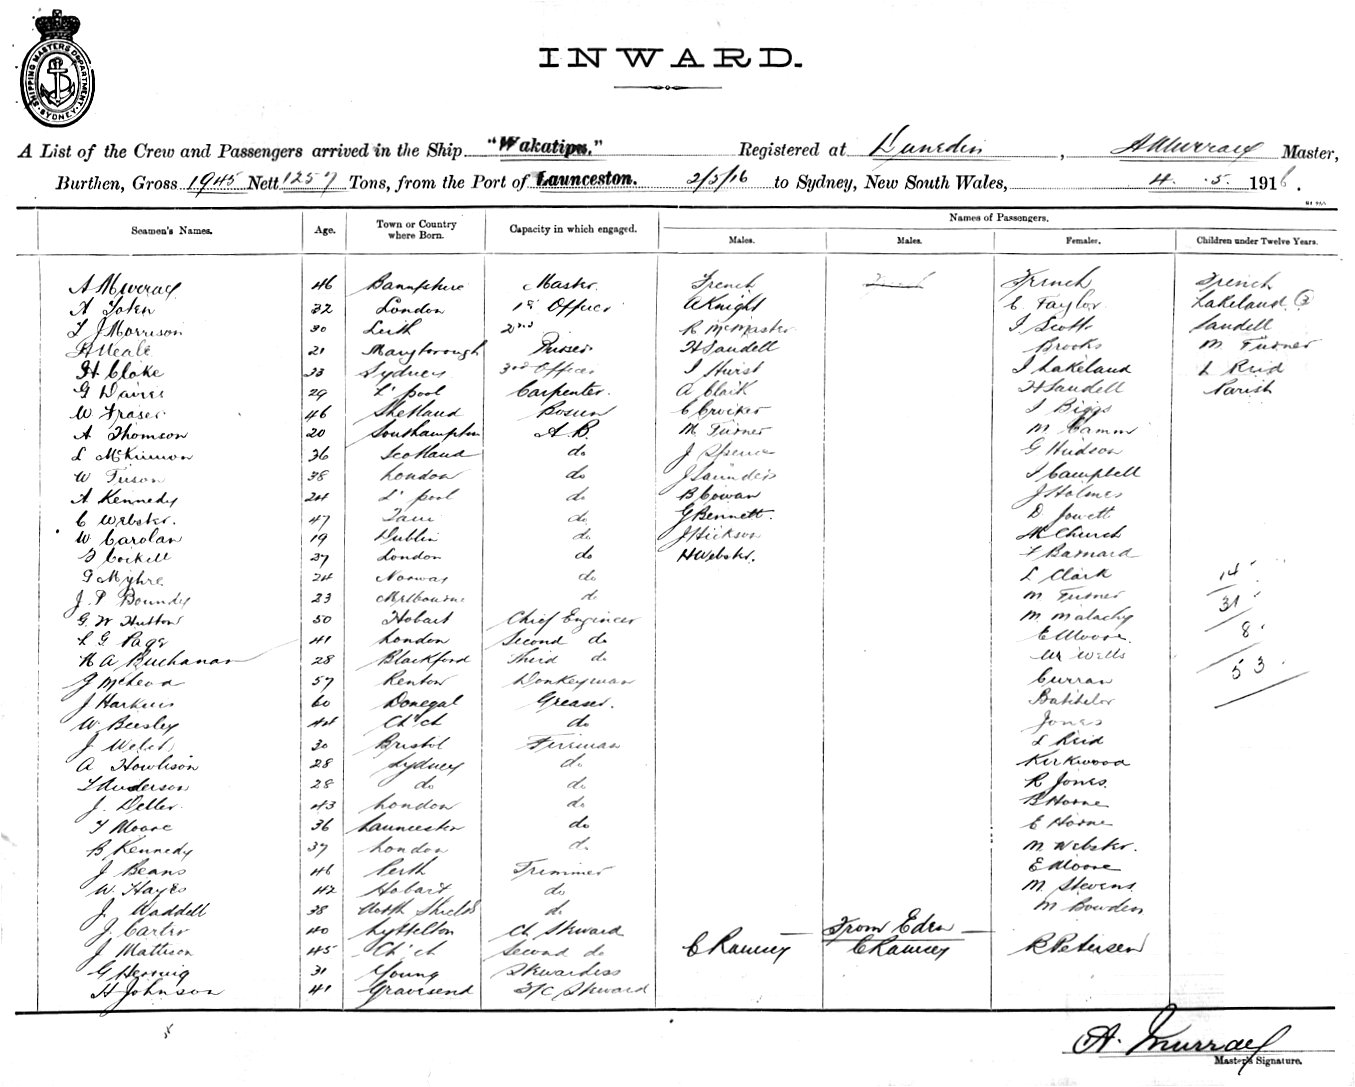 SHIPPING MASTERS DEPARTMENT SYDNEY
INWARD.
A List of the Crew and Passengers arrived in the Ship "Wakatipu." Registered at Dunedin, A Murray Master,
Burthen, Gross 1945 Nett 1257 Tons, from the Port of Launceston. 2/5/16 to Sydney, New South Wales, 4 . 5. 1916.
Names of Passengers.
Seamen's Names. Age. Town or Country where Born. Capacity in which engaged. Males. Males. Females. Children under Twelve Years.
A Murray 46 Master. French French French
32 London 1st Officer A Knight E Taylor Lakeland (3
T J Morrison 30 Leith 2nd R McMaster J Scott Sandell
H Neale 21 Maryborough Purser H Sandell Brooks M Turner
H Cloke 33 Sydney 3rd Officer J Hurst J Lakeland L Reid
G Davies 29 L'pool Carpenter. A Clark H Sandell Parish
W Fraser 46 Shetland Bosun C Crocker J Biggs
A Thomson 20 Southampton A.B. M Turner M Camm
L McKinnon 36 Scotland do J Spence G Hudson
W Tuson 38 London do J Saunders J Campbell
A Kennedy 24 L'pool do B Cowan J Holmes
C Webster. 47 do G Bennett. D Jowett
W Carolan 19 Dublin do J Hickson M Church
37 London do H Webster. F Barnard
G Myhre 24 Norway do L Clark 14
J. P Boundy 23 Melbourne do M Turner 31
G. W Hutton 50 Hobart Chief Engineer M Malachy 8
L G Page 41 London Second do E Moore
R A Buchanan 28 Blackford Third do Wells 53
J McLeod 57 Renton Donkeyman Curran
J Harkins 60 Donegal Greaser. Batchelor
W Beesley 44 Ch'ch do Jones
J Welch 30 Bristol Fireman L Reid
A Howlison 28 Sydney do Kirkwood
T Anderson 28 do do R Jones.
J. Deller 43 London do B Horne
T Moore 36 Launceston do E Horne
B Kennedy 37 London do M Webster.
J Beans 46 Perth Trimmer E Moore
W Hayes 42 Hobart do M. Stevens
J Waddell 38 North Shields do M Bowden
J. Carter 40 Lyttelton Ch Steward From Eden
J Mattison 45 Ch'ch Second do C Ramsey C Ramsey R Petersen
G Herring 31 Young Stewardess
H Johnson 41 Gravesend F/C Steward
A. Murray
Master's Signature.